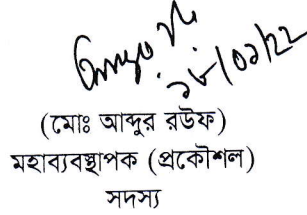 ১৮/০১/২২
(মোঃ আব্দুর রউফ)
মহাব্যবস্থাপক (প্রকৌশল)
সদস্য